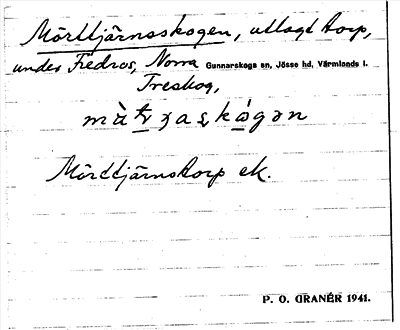 Mörttjärnsskogen, utlagt torp,
under Fredros, Norra Gunnarskogs sn, Jösse hd, Värmlands l.
Treskog,
Mörttjärnstorp ek.
P. O. GRANÉR 1941.